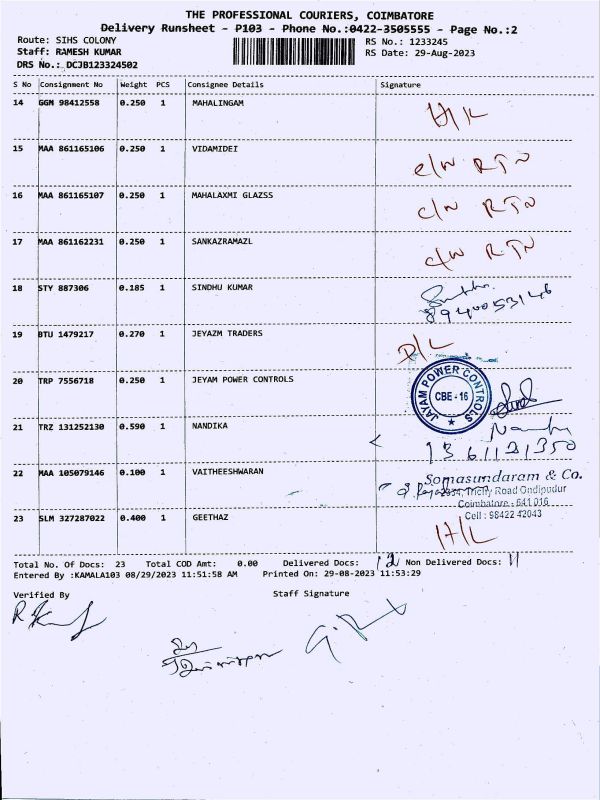 THE PROFESSIONAL COURIERS, COIMBATORE
Delivery Runsheet - P103 - Phone No.:0422-3505555 - Page No.:2
Route: SIHS COLONY
RS No.: 1233245
Staff: RAMESH KUMAR
RS Date: 29-Aug-2023
DRS No.: DCJB123324502
S No Consignment No Weight PCS Consignee Details Signature
14 GGN 98412558 0.250 1 MAHALINGAM
15 MAA 861165106 0.250 1 VIDAMIDEI c/w RTN
16 MAA 861165107 0.250 1 MAHALAXMI GLAZSS c/w RTN
17 MAA 861162231 0.250 1 SANKAZRAMAZL c/w RTN
18 STY 887306 0.185 1 SINDHU KUMAR
8940053146
19 BTU 1479217 0.270 1 JEYAZM TRADERS D/L
20 TRP 7556718 0.250 1 JEYAM POWER CONTROLS JAYAM POWER CONTROLS CBE - 16
21 TRZ 131252130 0.590 1 NANDIKA
22 MAA 105079146 0.100 1 VAITHEESHWARAN Somasundaram & Co.
Trichy Road Ondipudur
Coimbatore - 641 016
Cell : 98422 42043
23 SLM 327287022 0.400 1 GEETHAZ H/L
Total No. Of Docs: 23 Total COD Amt: 0.00 Delivered Docs: 12 Non Delivered Docs: 11
Entered By :KAMALA103 08/29/2023 11:51:58 AM Printed On: 29-08-2023 11:53:29
Verified By Staff Signature